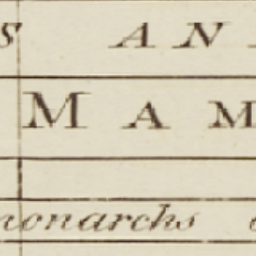 S AN
MAM
monarchs